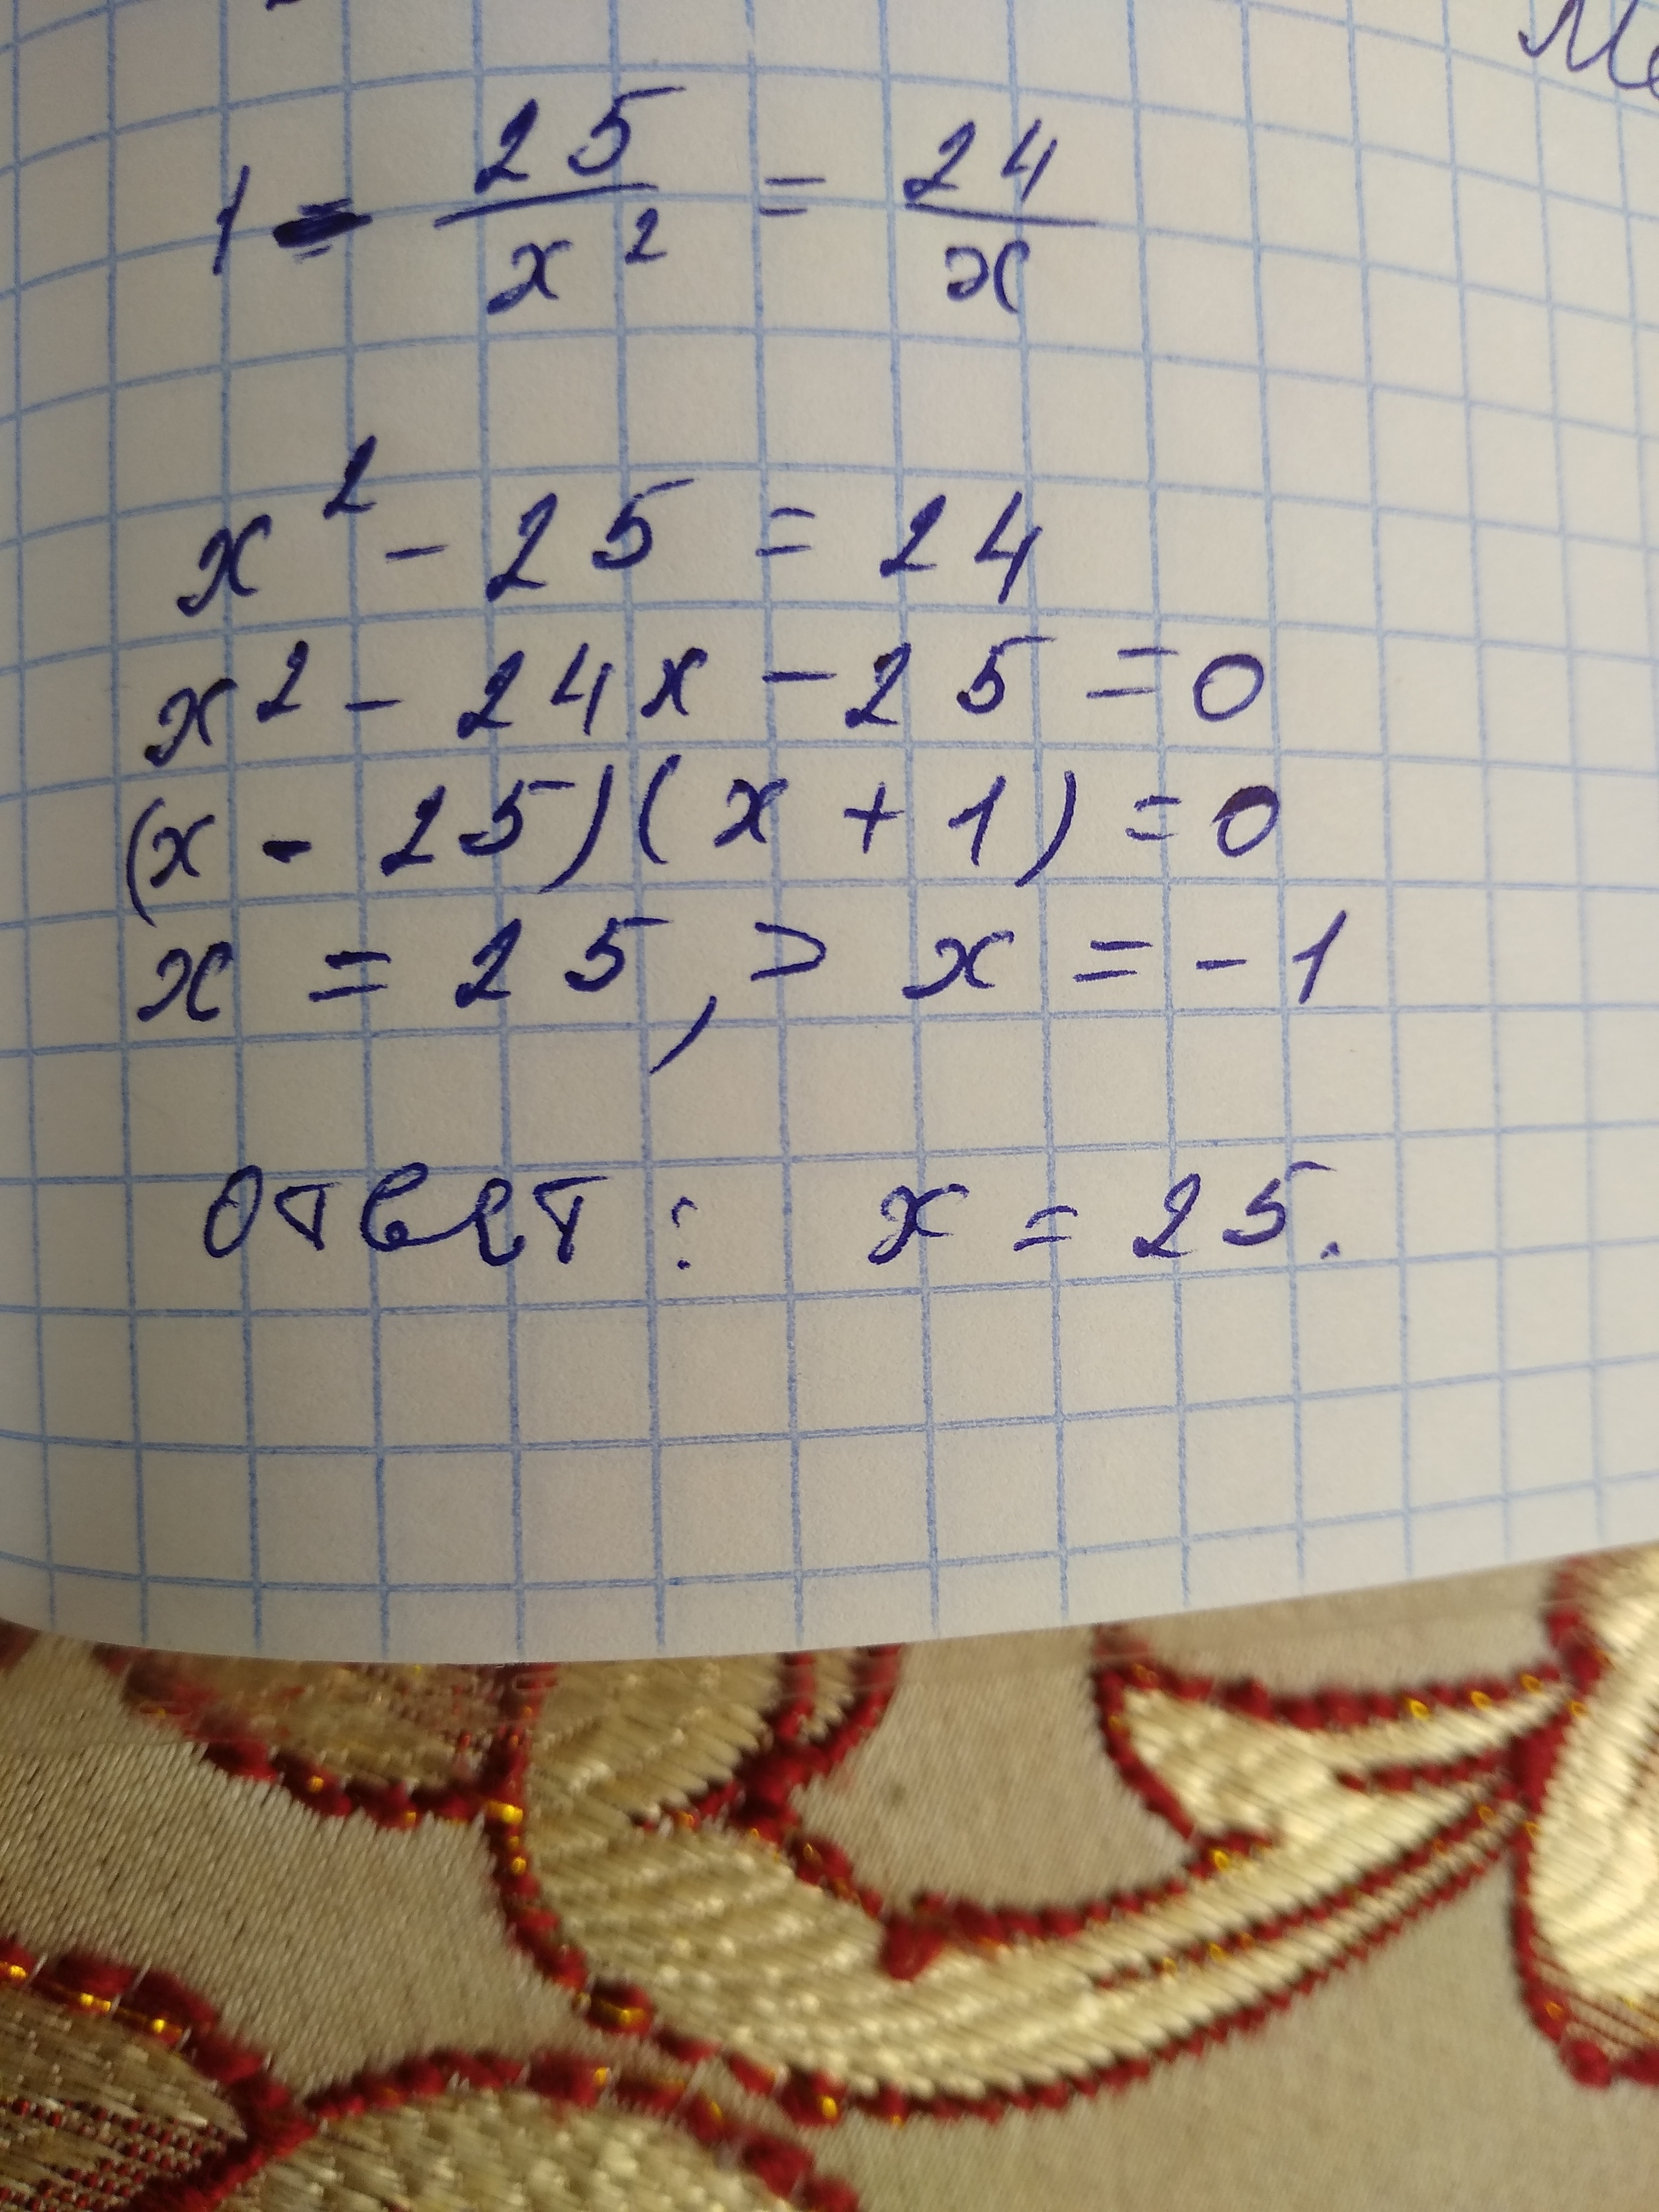 1 - 25/x² = 24/x
x² - 25 = 24
x² - 24x - 25 = 0
(x - 25)(x + 1) = 0
x = 25, > x = -1
ответ: x = 25.